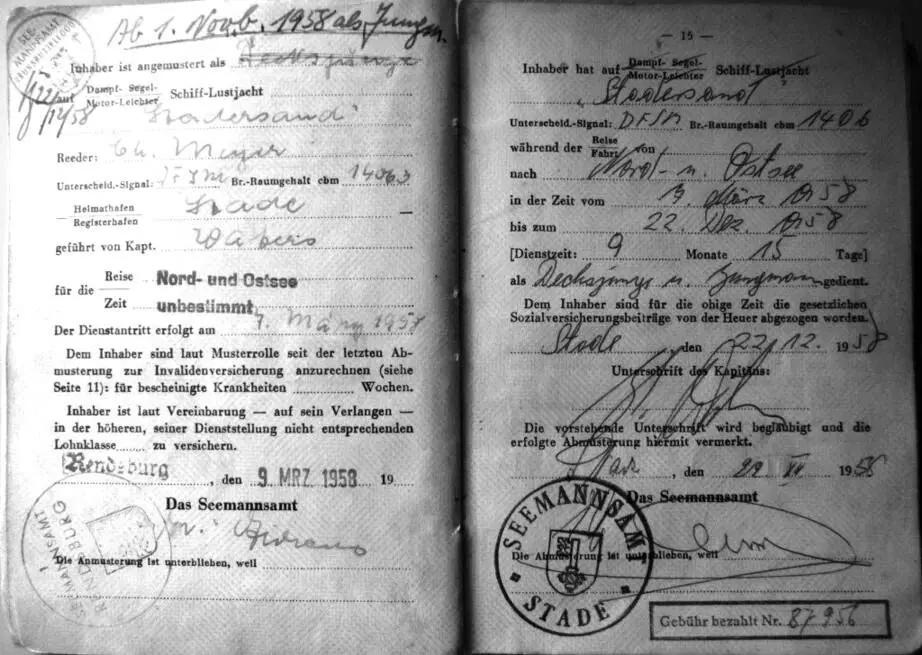 Ab 1. Novb. 1958 als Jungm.
Inhaber ist angemustert als Decksjunge
auf Dampf- Segel- Motor-Leichter Schiff-Lustjacht
"Stadersand"
Reeder: Meyer
Unterscheid.-Signal: Br.-Raumgehalt cbm 1406,3
Heimathafen Registerhafen Stade
geführt von Kapt. Wabers
für die Reise Zeit Nord- und Ostsee unbestimmt
Der Dienstantritt erfolgt am 7. März 1958
Dem Inhaber sind laut Musterrolle seit der letzten Ab-
musterung zur Invalidenversicherung anzurechnen (siehe
Seite 11): für bescheinigte Krankheiten Wochen.
Inhaber ist laut Vereinbarung — auf sein Verlangen —
in der höheren, seiner Dienststellung nicht entsprechenden
Lohnklasse zu versichern.
Rendsburg, den 9. MRZ 1958 19
Das Seemannsamt
Die Anmusterung ist unterblieben, weil
SEEMANNSAMT RENDSBURG
— 15 —
Inhaber hat auf Dampf- Segel- Motor-Leichter Schiff-Lustjacht
"Stadersand"
Unterscheid.-Signal: Br.-Raumgehalt cbm 1406
während der Reise Fahrt von
nach Nord- u. Ostsee
in der Zeit vom 7. März 1958
bis zum 22. Dez. 1958
[Dienstzeit: 9 Monate 15 Tage]
als Decksjunge u. Jungmann gedient.
Dem Inhaber sind für die obige Zeit die gesetzlichen
Sozialversicherungsbeiträge von der Heuer abgezogen worden.
Stade, den 22.12. 1958
Unterschrift des Kapitäns:
Die vorstehende Unterschrift wird beglaubigt und die
erfolgte Abmusterung hiermit vermerkt.
Stade, den 22. XII 1958
Das Seemannsamt
Die Abmusterung ist unterblieben, weil
SEEMANNSAMT STADE
Gebühr bezahlt Nr. 87956